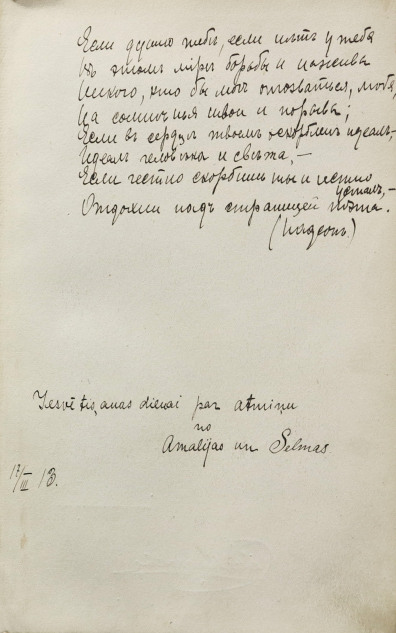 Если душно тебѣ, если нѣтъ у тебя
Въ этомъ мірѣ борьбы и наживы
Никого, кто бы могъ отозваться, любя,
На сомнѣнья твои и порывы;
Если въ сердцѣ твоемъ оскорбленъ идеалъ,
Идеалъ человѣка и свѣта,—
Если честно скорбишь ты и честно
усталъ,—
Отдохни надъ страницей поэта.
(Надсонъ.)
dienai par atmiņu
no
Amalijas un Selmas
17/III 13.